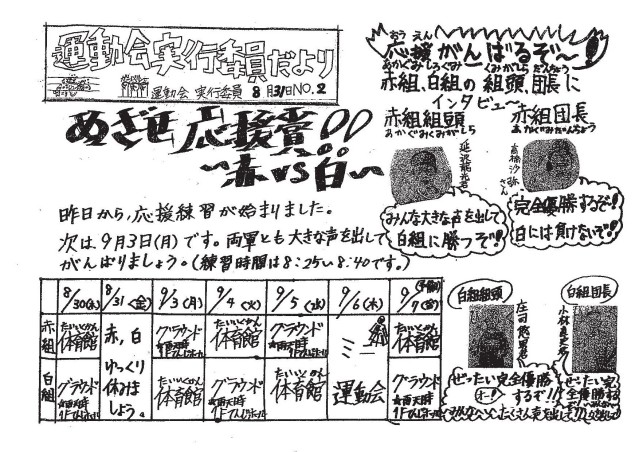 運動会実行委員だより
運動会 実行委員 8月31日 NO.2
めざせ応援賞!!
〜赤vs白〜
おうえん
応援がんばるぞ〜!
あかぐみしろぐみ くみがしら だんちょう
赤組、白組の 組頭、団長に
インタビュー
赤組組頭
あかぐみくみがしら
赤組団長
あかぐみだんちょう
さん
みんな大きな声を出して
白組に勝つぞ!
完全優勝するぞ!
白には負けないぞ!
昨日から、応援練習が始まりました。
次は、9月3日(月)です。両軍とも大きな声を出して
がんばりましょう。(練習時間は8:25〜8:40です。)
8/30(木) 8/31(金) 9/3(月) 9/4(火) 9/5(水) 9/6(木) 9/7(金) (予備)
赤組 たいいくかん 体育館 赤、白 ゆっくり休みましょう。 グラウンド ★雨天時 たいいくかん 体育館 グラウンド ★雨天時 運動会 たいいくかん 体育館
白組 グラウンド ★雨天時 たいいくかん 体育館 グラウンド ★雨天時 たいいくかん 体育館 グラウンド ★雨天時
白組組頭
白組団長
ぜったい完全優勝
するぞ!!
オー!
ぜったい完
全優勝
するぞ!!